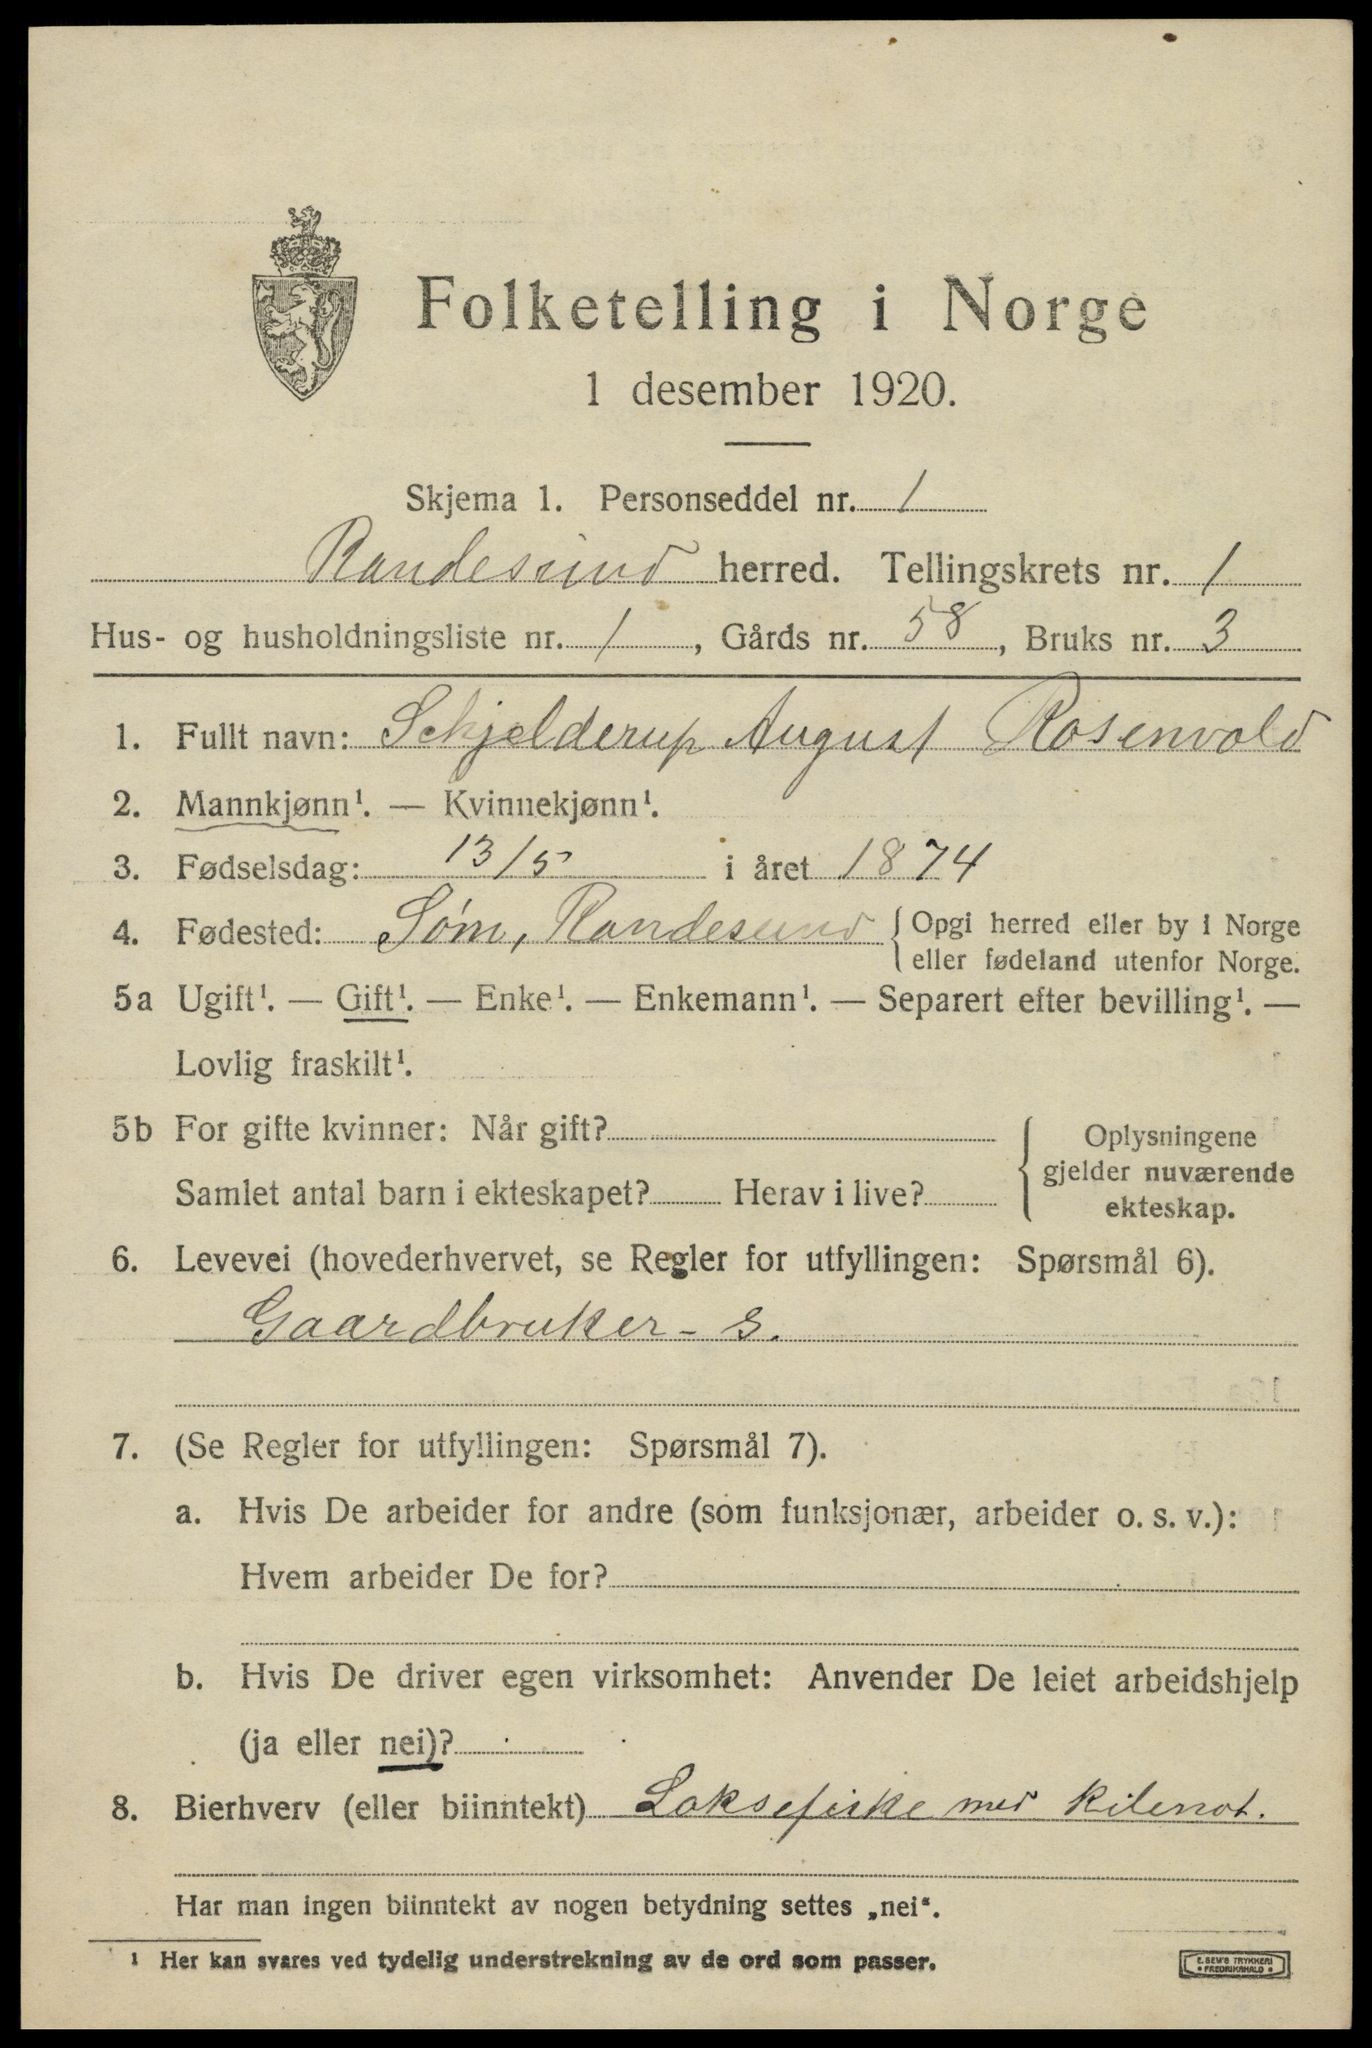 Folketelling i Norge
1 desember 1920.
Skjema 1. Personseddel nr. 1
Randesund herred. Tellingskrets nr. 1
Hus- og husholdningsliste nr. 1, Gårds nr. 58, Bruks nr. 3
1. Fullt navn: Schjelderup August Rosenvold
2. Mannkjønn¹. — Kvinnekjønn¹.
3. Fødselsdag: 13/5 i året 1874
4. Fødested: Søm, Randesund { Opgi herred eller by i Norge
eller fødeland utenfor Norge.
5a Ugift¹. — Gift¹. — Enke¹. — Enkemann¹. — Separert efter bevilling¹. —
Lovlig fraskilt¹.
5b For gifte kvinner: Når gift?
Samlet antal barn i ekteskapet? Herav i live?
{ Oplysningene
gjelder nuværende
ekteskap.
6. Levevei (hovederhvervet, se Regler for utfyllingen: Spørsmål 6).
Gaardbruker - s.
7. (Se Regler for utfyllingen: Spørsmål 7).
a. Hvis De arbeider for andre (som funksjonær, arbeider o. s. v.):
Hvem arbeider De for?
b. Hvis De driver egen virksomhet: Anvender De leiet arbeidshjelp
(ja eller nei)?
8. Bierhverv (eller biinntekt) Laksefiske med kilenot.
Har man ingen biinntekt av nogen betydning settes „nei“.
¹ Her kan svares ved tydelig understrekning av de ord som passer.
E. SEM'S TRYKKERI
• FREDRIKSHALD •